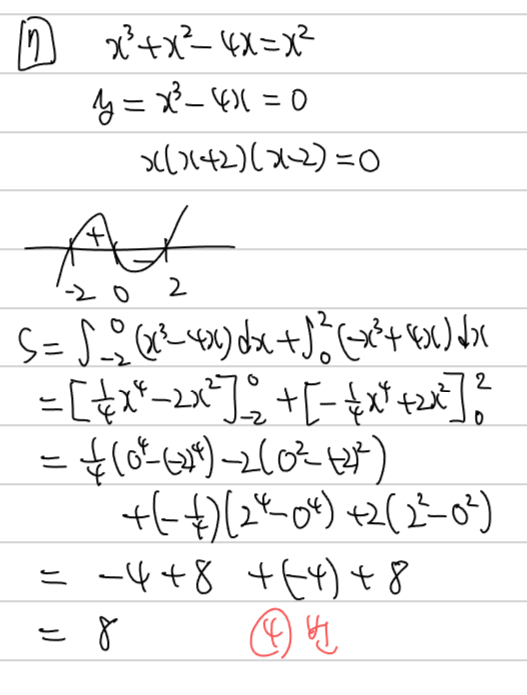 7 x³+x²-4x=x²
y=x³-4x=0
x(x+2)(x-2)=0
+ -
-2 0 2
S=∫₋₂⁰(x³-4x)dx+∫₀²(-x³+4x)dx
=[¼x⁴-2x²]₋₂⁰+[-¼x⁴+2x²]₀²
=¼(0⁴-(-2)⁴)-2(0²-(-2)²)
+(-¼)(2⁴-0⁴)+2(2²-0²)
= -4+8 +(-4)+8
= 8 ④번